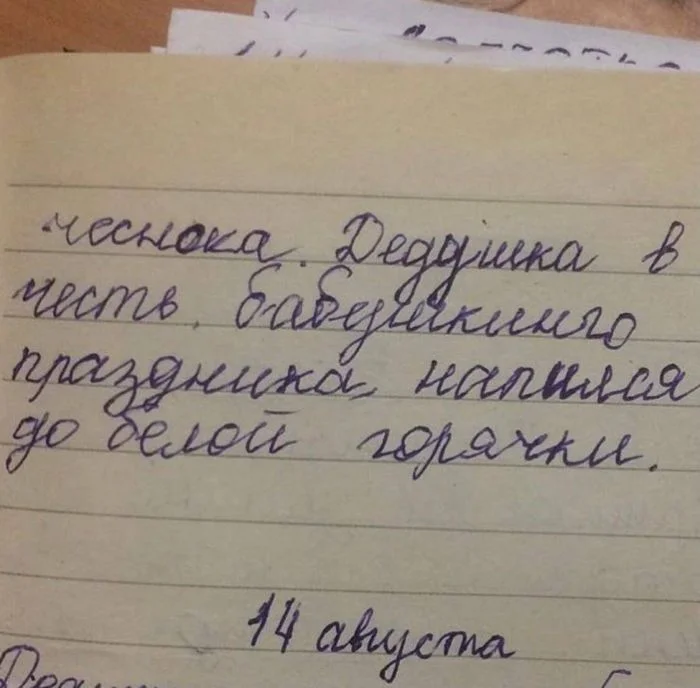 чеснока. Дедушка в
честь, бабушкинго
праздника, напился
до белой горячки.
14 августа